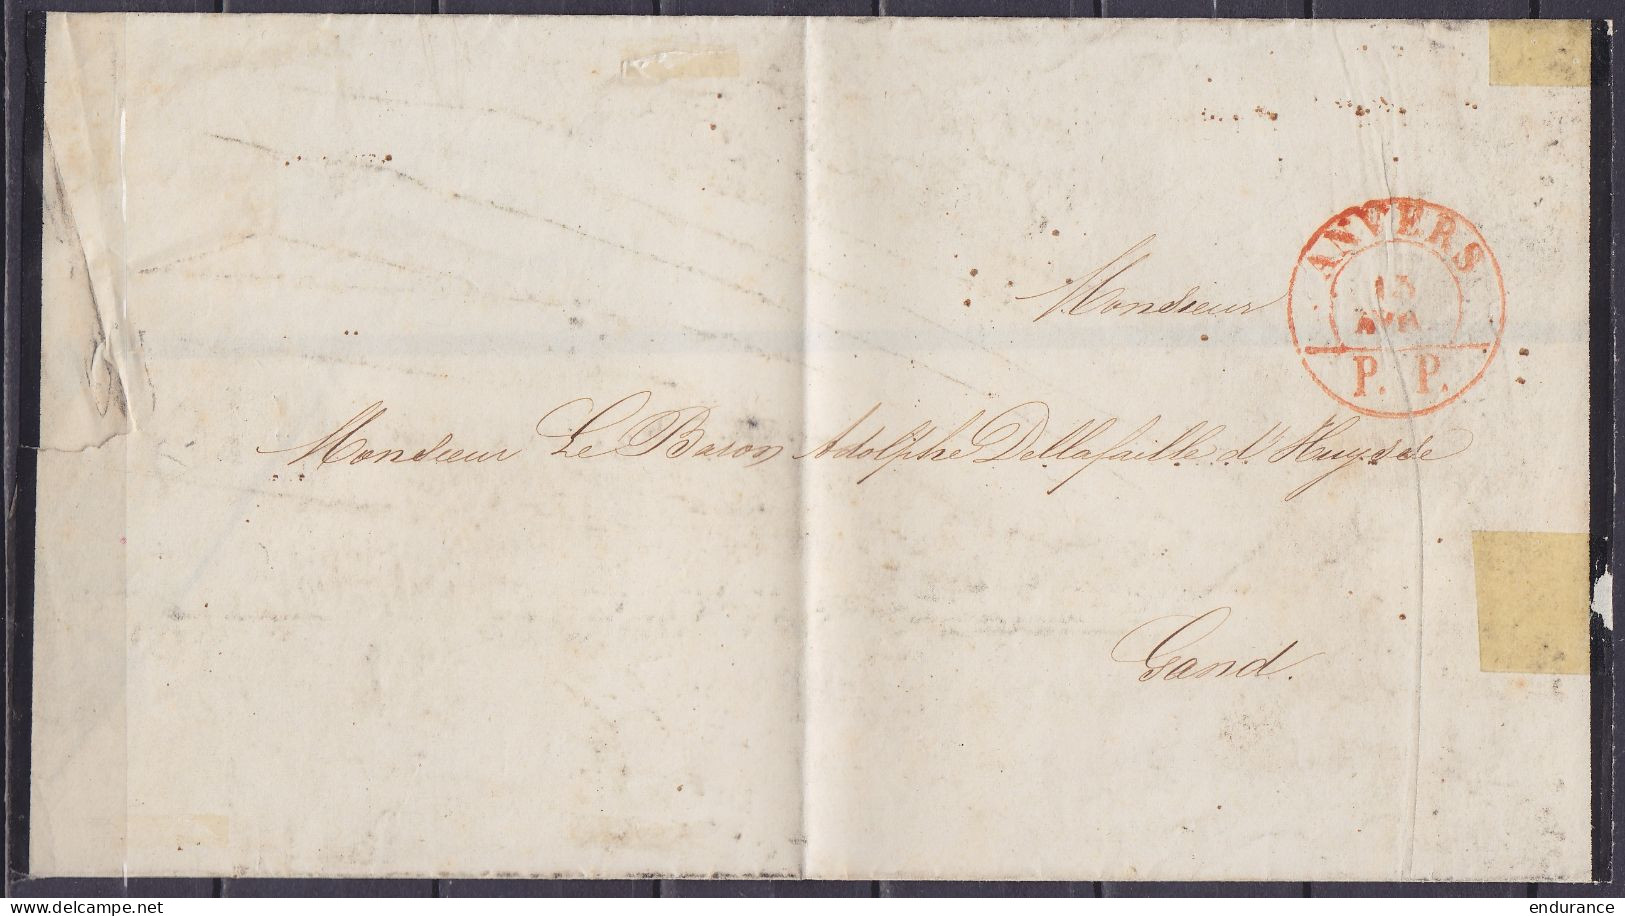 ANVERS
13
AVR
P. P.
Monsieur
Monsieur Le Baron Adolphe Dellafaille d'Huysse
Gand.
www.delcampe.net
endurance